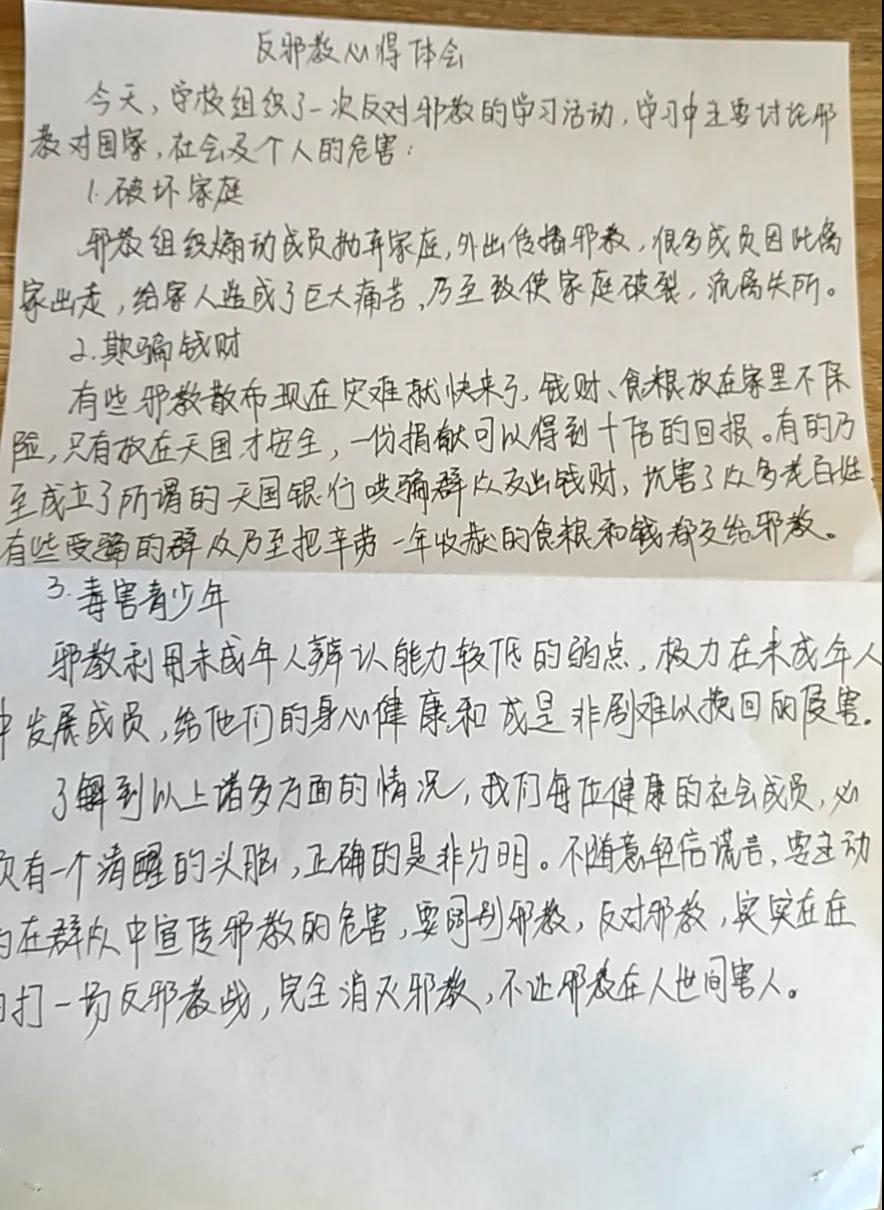 反邪教心得体会
今天，学校组织了一次反对邪教的学习活动，学习中主要讨论邪
教对国家，社会及个人的危害：
1.破坏家庭
邪教组织煽动成员抛弃家庭，外出传播邪教，很多成员因此离
家出走，给家人造成了巨大痛苦，乃至致使家庭破裂，流离失所。
2.欺骗钱财
有些邪教散布现在灾难就快来了，钱财、食粮放在家里不保
险，只有放在天国才安全，一份捐献可以得到十倍的回报。有的乃
至成立了所谓的天国银行哄骗群众交出钱财，坑害了众多老百姓，
有些受骗的群众乃至把辛劳一年收获的食粮和钱都交给邪教。
3.毒害青少年
邪教利用未成年人辨认能力较低的弱点，极力在未成年人
中发展成员，给他们的身心健康和成是非剧难以挽回的侵害。
了解到以上诸多方面的情况，我们每位健康的社会成员，必
须有一个清醒的头脑，正确的是非分明。不随意轻信谎言，要主动
的在群众中宣传邪教的危害，要阔别邪教，反对邪教，实实在在
的打一场反邪教战，完全消灭邪教，不让邪教在人世间害人。